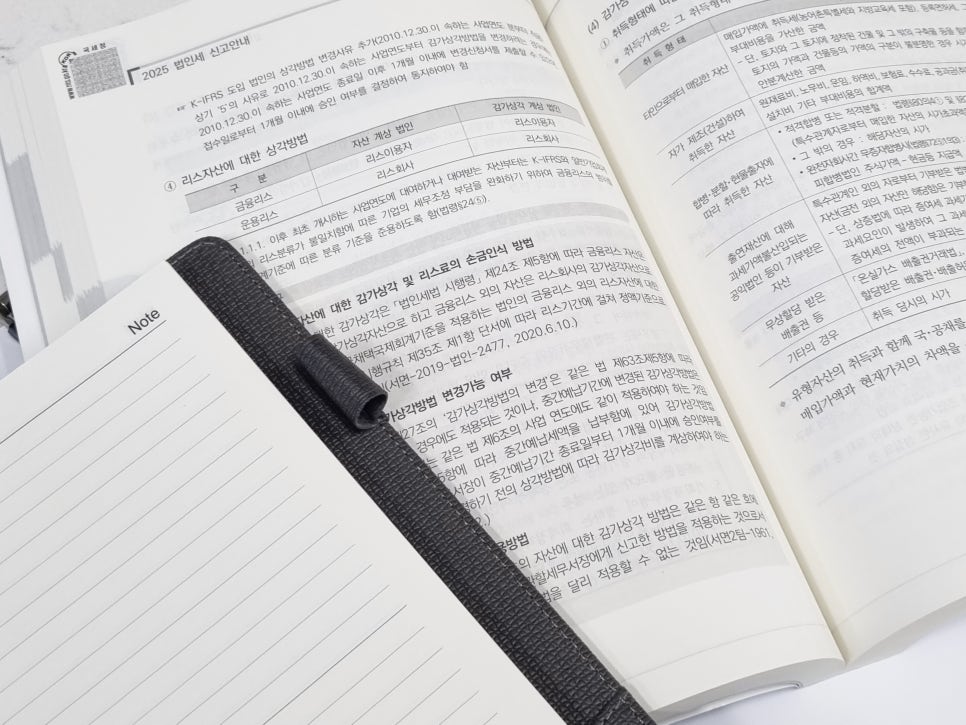 국세청
2025 법인세 신고안내
K-IFRS 도입 법인의 상각방법 변경사유 추가(2010.12.30.이 속하는 사업연도
상기 '5'의 사유로 2010.12.30.이 속하는 사업연도부터 감가상각방법을 변경하려는
2010.12.30.이 속하는 사업연도 종료일 이후 1개월 이내에 변경신청서를 제출할 수
접수일로부터 1개월 이내에 승인 여부를 결정하여 통지하여야 함
④ 리스자산에 대한 상각방법
구 분 자산 계상 법인 감가상각 계상 법인
금융리스 리스이용자 리스이용자
운용리스 리스회사 리스회사
1.1. 이후 최초 개시하는 사업연도에 대여하거나 대여받는 자산부터는 K-IFRS와
리스분류가 불일치함에 따른 기업의 세무조정 부담을 완화하기 위하여 금융리스의
기준에 따른 분류 기준을 준용하도록 함(법령§24⑤).
에 대한 감가상각 및 리스료의 손금인식 방법
한 감가상각은 「법인세법 시행령」 제24조 제5항에 따라 금융리스 자산은
가상각자산으로 하고 금융리스 외의 자산은 리스회사의 감가상각자산으로
채택국제회계기준을 적용하는 법인의 금융리스 외의 리스자산에 대한
행규칙 제35조 제1항 단서에 따라 리스기간에 걸쳐 정액기준으로
(서면-2019-법인-2477, 2020.6.10.)
상각방법 변경가능 여부
27조의 '감가상각방법의 변경'은 같은 법 제63조제5항에 따라
경우에도 적용되는 것이나, 중간예납기간에 변경된 감가상각방법은
는 같은 법 제6조의 사업 연도에도 같이 적용하여야 하는 것임
항에 따라 중간예납세액을 납부함에 있어 감가상각방법
서장이 중간예납기간 종료일부터 1개월 이내에 승인여부를
하기 전의 상각방법에 따라 감가상각비를 계상하여야 하는
방법
의 자산에 대한 감가상각 방법은 같은 항 같은 호에
할세무서장에게 신고한 방법을 적용하는 것으로서
법을 달리 적용할 수 없는 것임(서면2팀-1961,
Note
(4) 감가상각
① 취득형태에 따
취득가액은 그 취득형태
취 득 형 태
타인으로부터 매입한 자산
매입가액에 취득세(농어촌특별세와 지방교육세 포함), 등록면허세,
부대비용을 가산한 금액
- 단, 토지와 그 토지에 정착된 건물 및 그 밖의 구축물 등을 함께
토지의 가액과 건물등의 가액의 구분이 불분명한 경우
안분계산한 금액
자가 제조(건설)하여
취득한 자산
원재료비, 노무비, 운임, 하역비, 보험료, 수수료, 공과금
설치비 기타 부대비용의 합계액
합병·분할·현물출자에
따라 취득한 자산
• 적격합병 또는 적격분할 :
(특수관계자로부터 매입한 자산의 시가초과액
• 그 밖의 경우 : 해당자산의 시가
피합병법인 주식가액 - 현금등 지급액
출연재산에 대해
과세가액불산입되는
공익법인 등이 기부받은
자산
특수관계인 외의 자로부터 기부받은
자산(금전 외의 자산만 해당)은 기부한
- 단, 상증법에 따라 증여세 과세가액
과세요인이 발생하여 그 과세가액
증여세의 전액이 부과되는
무상할당 받은
배출권 등
「온실가스 배출권거래법」
할당받은 배출권·배출허용
기타의 경우
취득 당시의 시가
유형자산의 취득과 함께 국·공채를
매입가액과 현재가치의 차액을